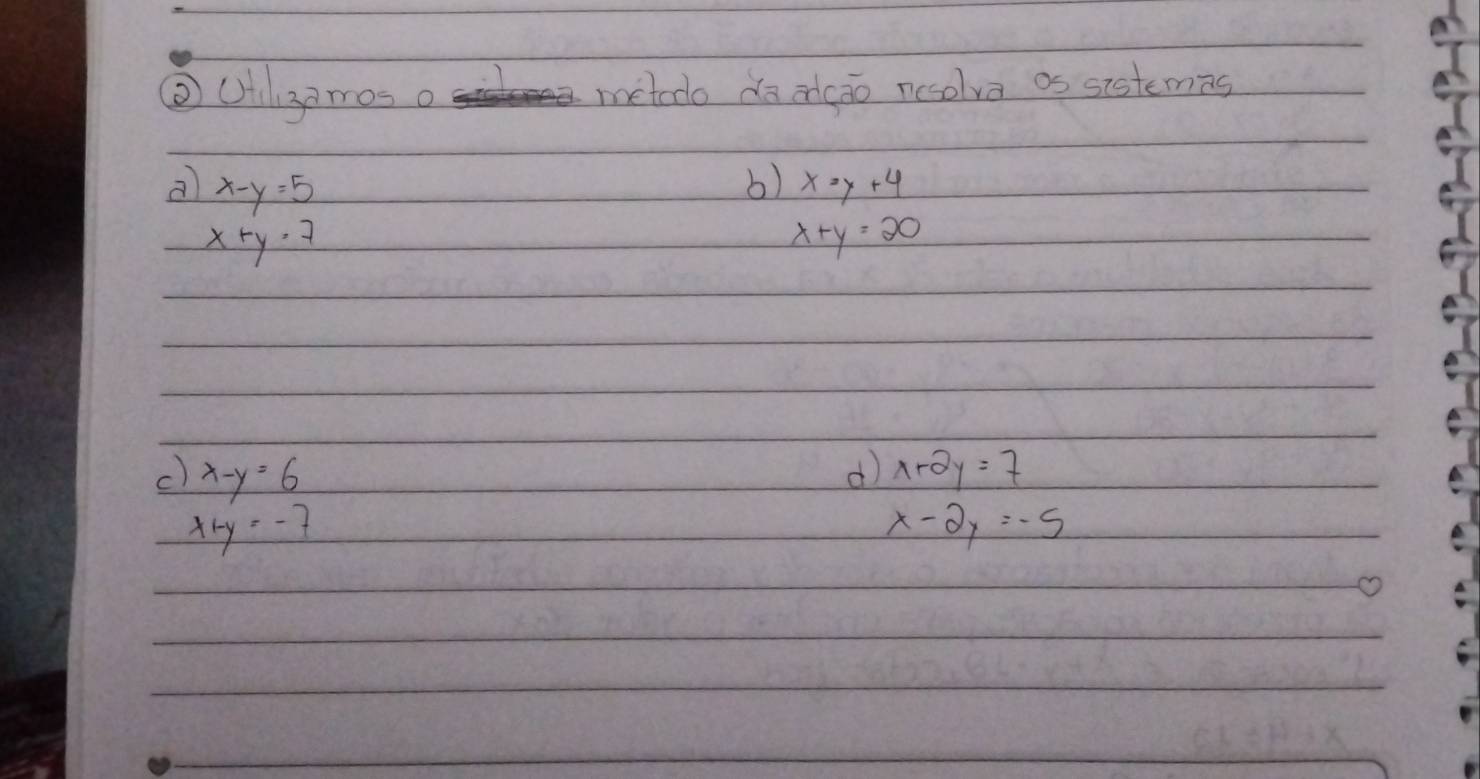 ② Utilizamos o método da adção resolva os sistemas
a) x-y=5 b) x=y+4
x+y=7 x+y=20
c) x-y=6 d) x+2y=7
x+y=-7 x-2y=-5